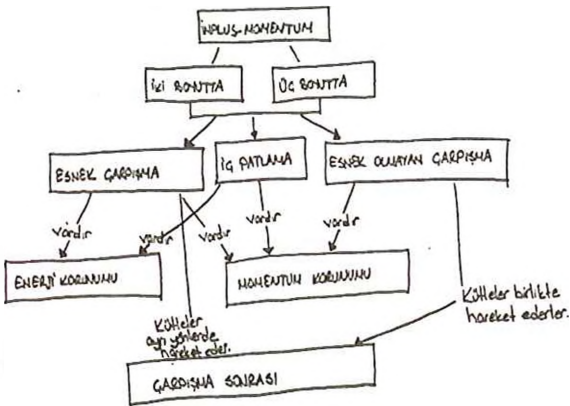 İNPLUS-MOMENTUM
İKİ BOYUTTA
ÜÇ BOYUTTA
ESNEK ÇARPIŞMA
İÇ PATLAMA
ESNEK OLMAYAN ÇARPIŞMA
vardır
vardır
vardır
vardır
vardır
ENERJİ KORUNUMU
MOMENTUM KORUNUMU
Kütleler
ayrı yönlerde
hareket eder.
Kütleler birlikte
hareket ederler.
ÇARPIŞMA SONRASI